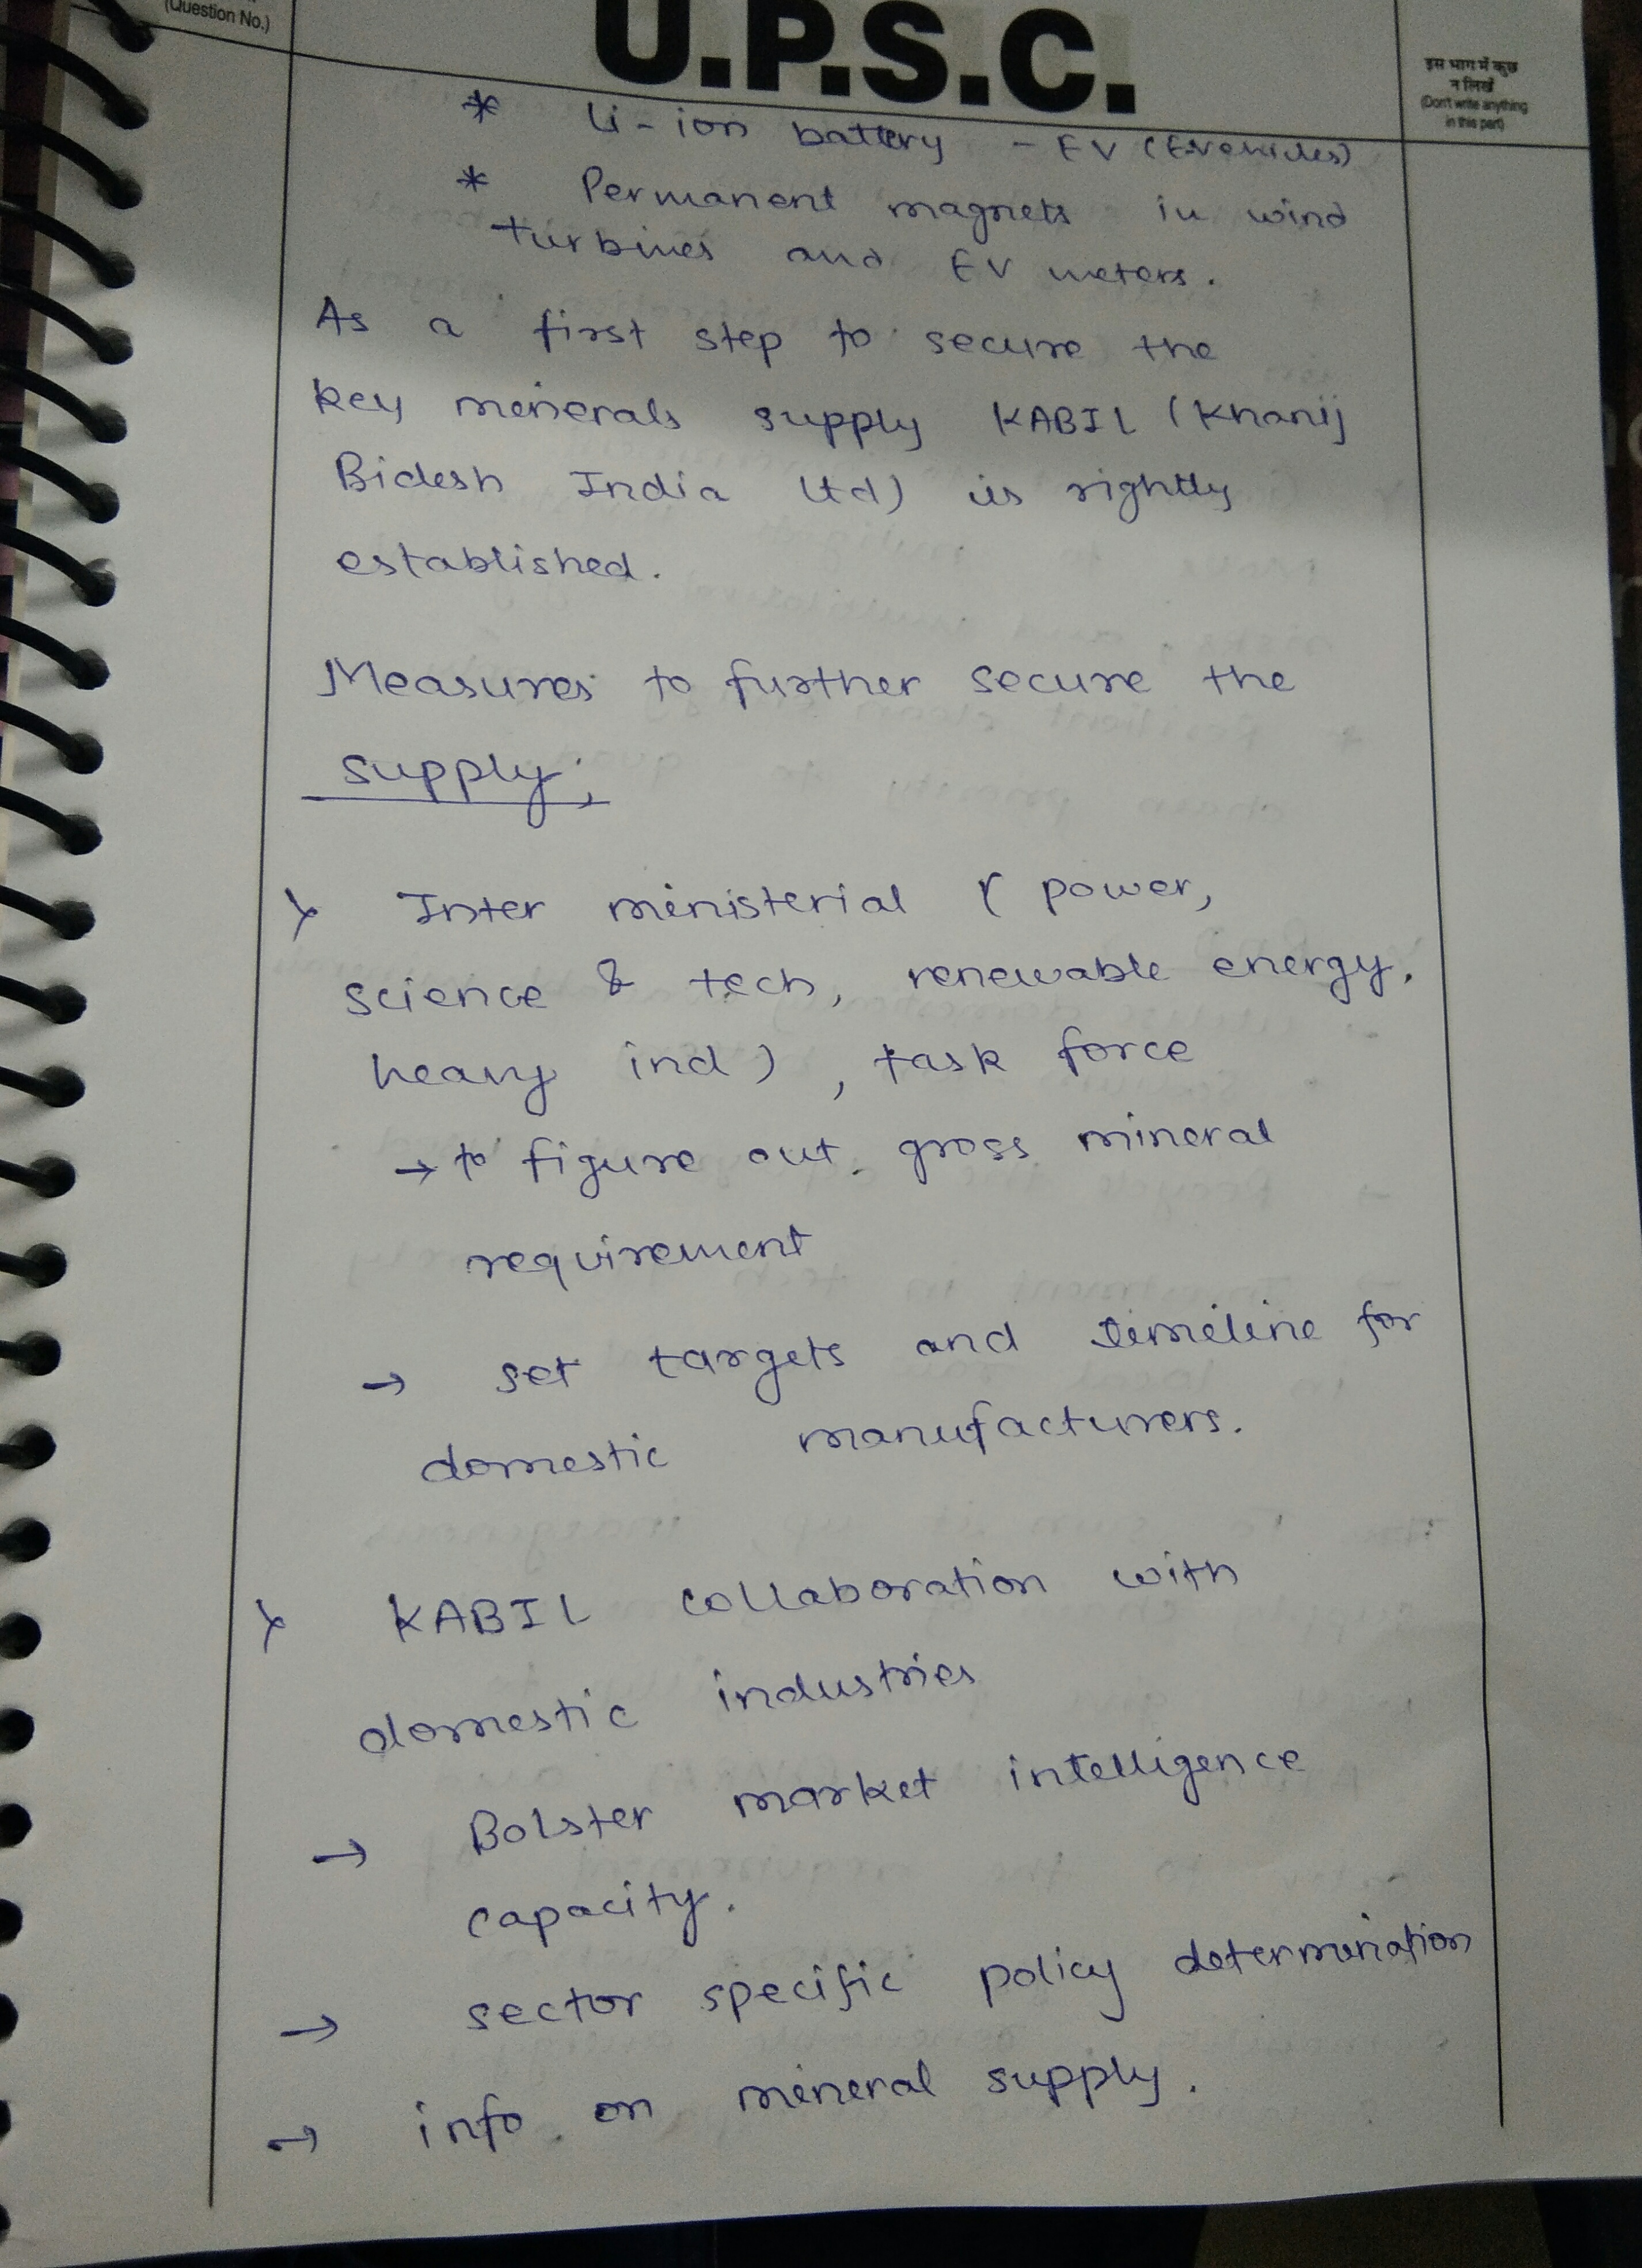 (Question No.)
U.P.S.C.
इस भाग में कुछ
न लिखें
(Don't write anything
in this part)
* Li-ion battery - EV (EVehicles)
* Permanent magnets in wind
turbines and EV meters.
As a first step to secure the
key minerals supply KABIL (Khanij
Bidesh India Ltd) is rightly
established.
Measures to further secure the
supply;
Inter ministerial ( power,
science & tech, renewable energy,
heavy ind ) , task force
→ to figure out. gross mineral
requirement
→ set targets and timeline for
domestic manufacturers.
KABIL collaboration with
domestic industries
→ Bolster market intelligence
capacity.
→ sector specific policy determination
→ info on mineral supply.